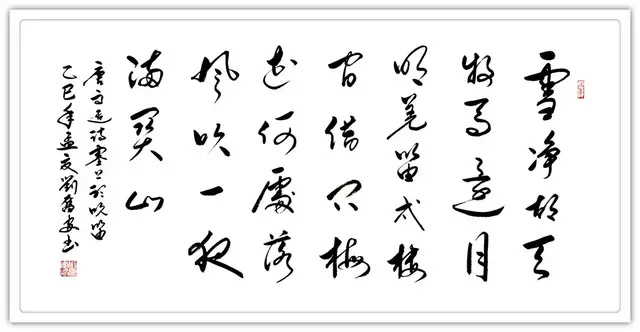 雪净胡天
牧马还月
明羌笛戍楼
间借问梅
花何處落
风吹一夜
满关山
唐高适诗塞上听吹笛
乙巳年孟夏劉安书